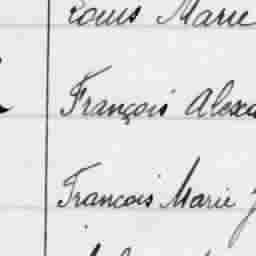 Louis Marie
François Alexa
Francois Marie J